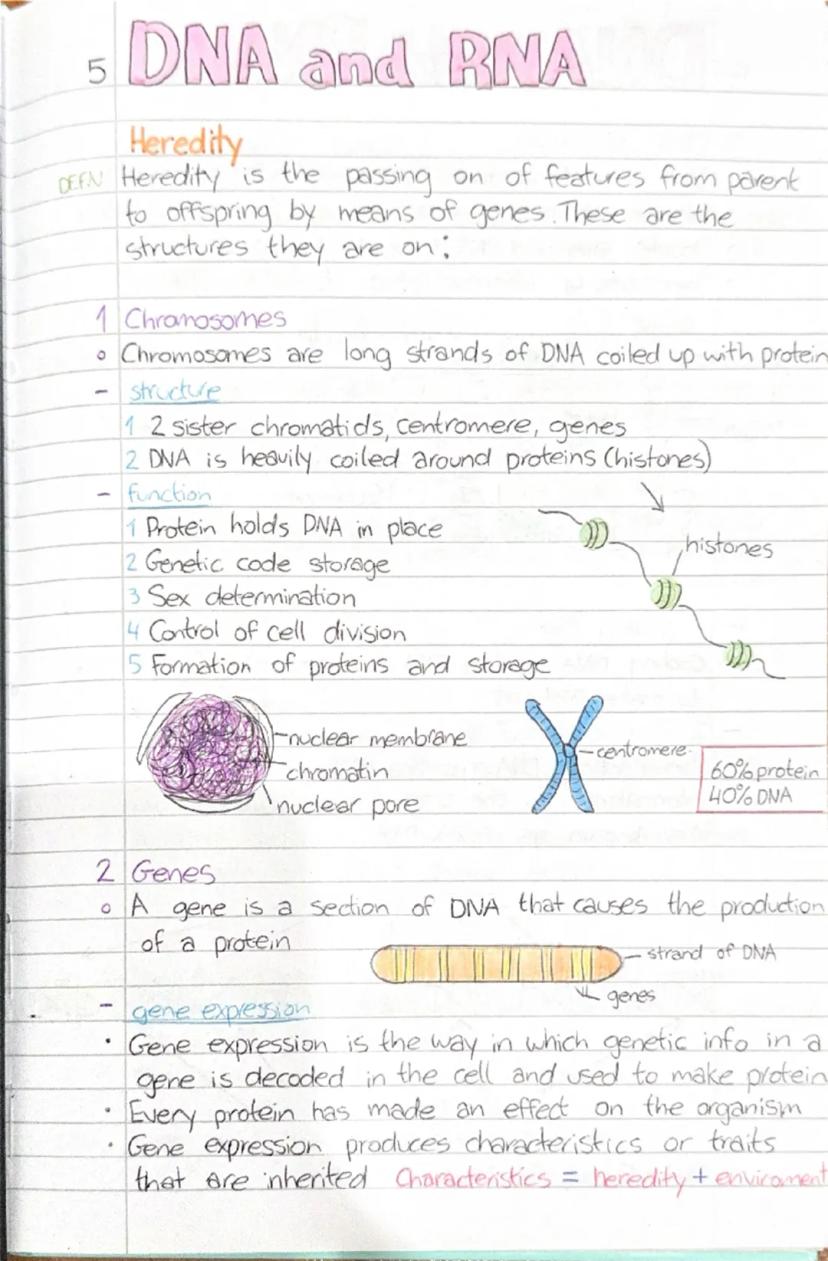 5 DNA and RNA
Heredity
DEFN Heredity is the passing on of features from parent
to offspring by means of genes. These are the
structures they are on:
1 Chromosomes
o Chromosomes are long strands of DNA coiled up with protein
- structure
1 2 sister chromatids, centromere, genes
2 DNA is heavily coiled around proteins (histones)
- function
1 Protein holds DNA in place
histones
2 Genetic code storage
3 Sex determination
4 Control of cell division
5 Formation of proteins and storage
nuclear membrane
chromatin
nuclear pore
centromere
60% protein
40% DNA
2 Genes
o A gene is a section of DNA that causes the production
of a protein
strand of DNA
genes
- gene expression
• Gene expression is the way in which genetic info in a
gene is decoded in the cell and used to make protein
• Every protein has made an effect on the organism
• Gene expression produces characteristics or traits
that are inherited Characteristics = heredity + enviroment